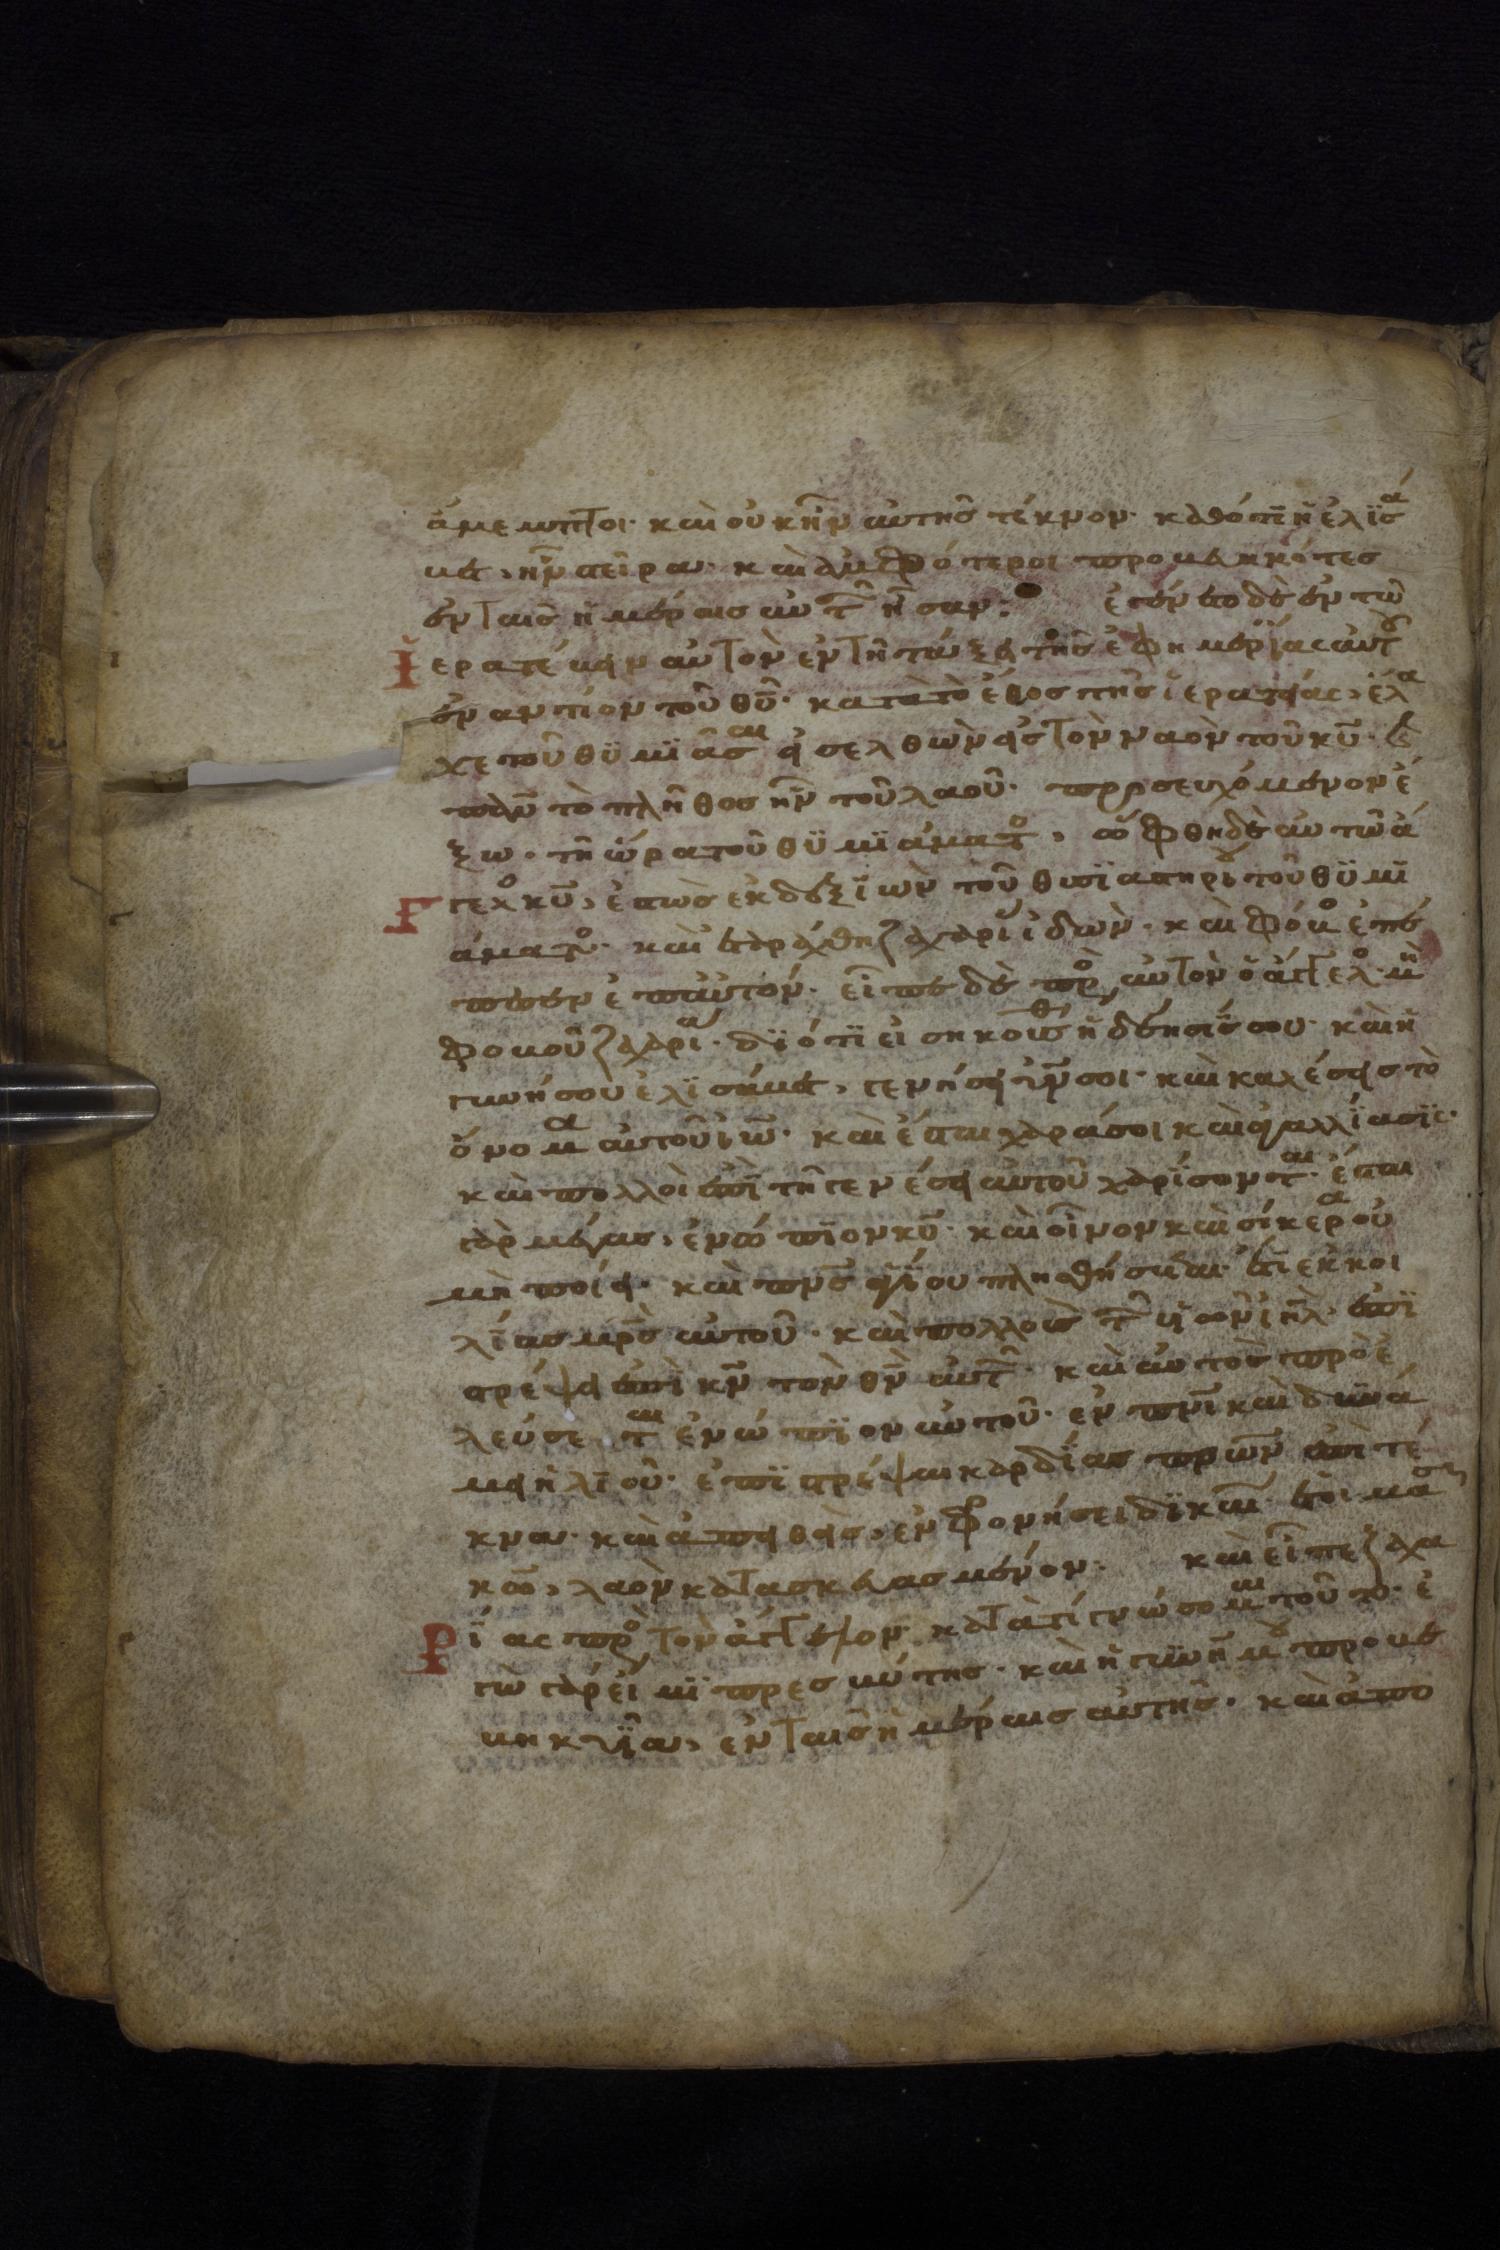 ἄμεμπτοι· καὶ οὐκ ἦν αὐτης τέκνον· καθότι ἡ ἐλϊσά
βετ, ἦν στεῖρα· καὶ ἀμφότεροι προβεβηκότες
ἐν ταις ἡμέραις αὐτῶν ἦσαν: ἐγένετο δὲ ἐν τῶ
ϊερατεύειν αὐτὸν ἐν τῆ τάξει τῆς ἐφημερίας αὐτου
ἐναντίον τοῦ θυ· κατὰ τὸ ἔθος της ϊερατείας, ἔλα
χε τοῦ θϋμϊᾶσαι εἰσελθὼν εἰς τὸν ναὸν τοῦ κυ· καὶ
παν τὸ πλῆθος ἦν τοῦ λαοῦ· προσευχόμενον ἔ
ξω· τῆ ὥρα τοῦ θϋμϊάματος, ὤφθη δὲ αὐτῶ ἄγ
γελος κυ, ἑστὼς ἐκ δεξϊῶν τοῦ θυσϊαστηρίου τοῦ θϋμϊ
άματος· καὶ ἐταράχθη ζαχαρίας ἰδὼν· καὶ φόβος ἐπέ
πεσεν ἐπ αὐτόν· εἶπε δὲ πρὸς αὐτὸν ὁ ἄγγελος· μὴ
φοβοῦ ζαχαρία· δϊότι εἰσηκούσθη ἡ δέησίς σου· καὶ ἡ
γυνή σου ἐλϊσάβετ, γεννήσει υἱν σοι· καὶ καλέσεις τὸ
ὄνομα αὐτοῦ ἰω· καὶ ἔσται χαρά σοι καὶ ἀγαλλΐασϊς·
καὶ πολλοὶ ἐπὶ τῆ γενέσει αὐτοῦ χαρΐσονται· ἔσται
γὰρ μέγας, ἐνώπϊον κυ· καὶ οἶνον καὶ σίκερα οὐ
μὴ ποίει· καὶ πνς ἁγΐου πλησθήσεται· ἔτι ἐκ κοι
λΐας μρς αὐτοῦ· καὶ πολλοὺς τῶν υἱῶν ἰηλ· ἐπϊ
στρέψει ἐπὶ κν τὸν θν αὐτῶν· καὶ αὐτὸς προε
λεύσεται ἐνώπϊον αὐτοῦ· ἐν πνϊ καὶ δυνά
μει ἠλϊοῦ· ἐπϊστρέψαι καρδΐας πρων ἐπὶ τέ
κνα· καὶ ἀπειθεῖς, ἐν φρονήσει δϊκαίων· ἑτοιμάσαι
κω, λαὸν κατασκευασμένον· καὶ εἶπε ζαχα
ρΐας πρὸς τὸν ἄγγελον· κατὰ τί γνώσομαι τοῦτο· ἐ
γὼ γάρ εἰμϊ πρεσβύτης· καὶ ἡ γυνή μου προβε
βηκυῖα, ἐν ταις ἡμέραις αὐτῆς· καὶ ἀπο